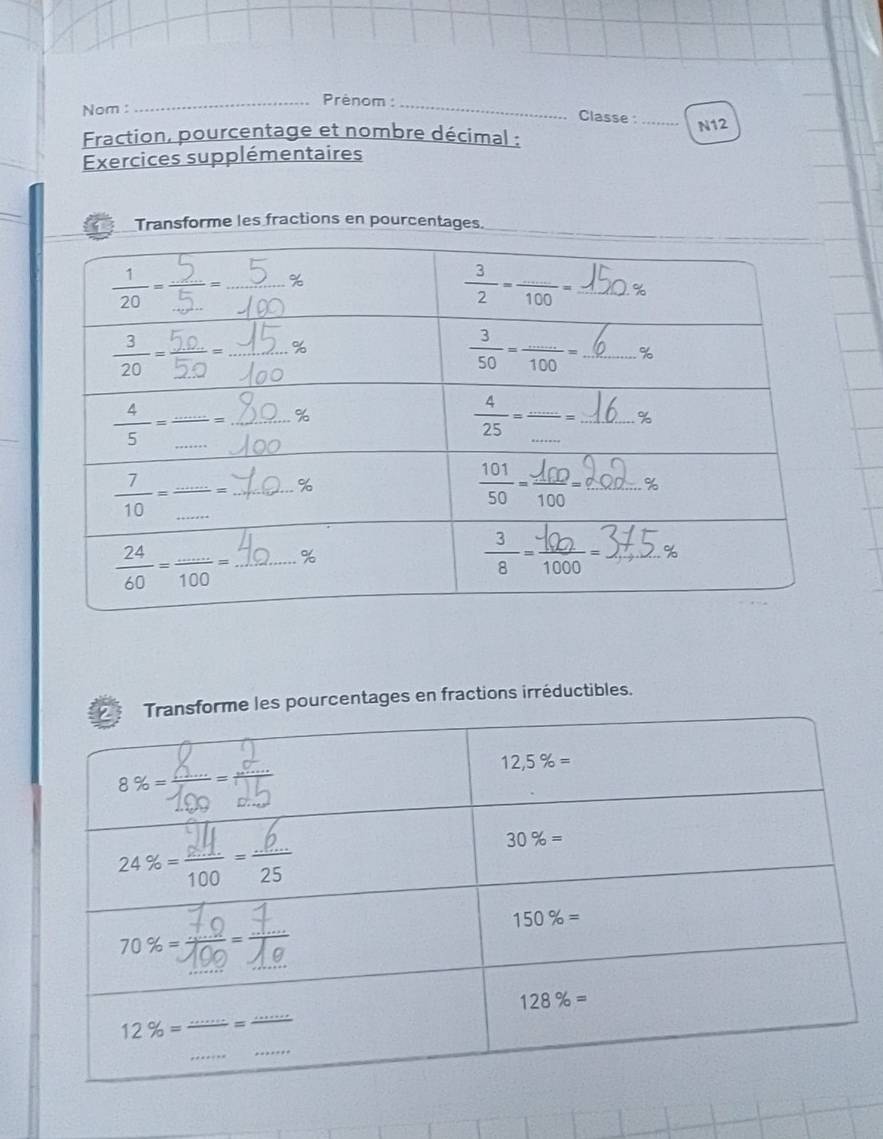 Nom : Prénom : Classe : N12
Fraction, pourcentage et nombre décimal :
Exercices supplémentaires
1 Transforme les fractions en pourcentages.
1/20 = 5/5 = 5/100 %
3/2 = ....../100 = 150 %
3/20 = 50/50 = 15/100 %
3/50 = ....../100 = 6 %
4/5 = ....../...... = 80/100 %
4/25 = ....../...... = 16 %
7/10 = ....../...... = 70 %
101/50 = 100/100 = 202 %
24/60 = ....../100 = 40 %
3/8 = 100/1000 = 37,5 %
2 Transforme les pourcentages en fractions irréductibles.
8 % = 8/100 = 2/25
12,5 % =
24 % = 24/100 = 6/25
30 % =
70 % = 70/100 = 7/10
150 % =
12 % = ....../...... = ....../......
128 % =